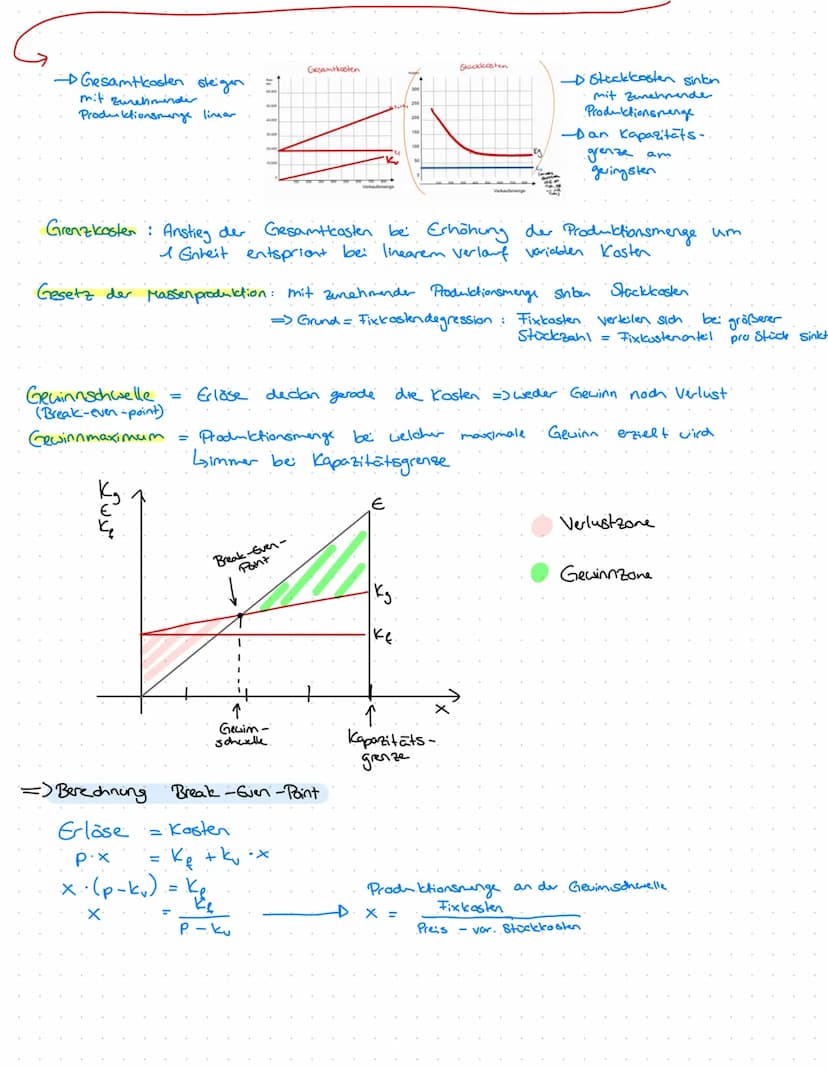 Gesamtkosten
Stückkosten
→ Gesamtkosten steigen
mit zunehmender
Produktionsmenge linear
→ Stückkosten sinken
mit zunehmender
Produktionsmenge
→ an Kapazitäts-
grenze am
geringsten
Verkaufsmenge
Verkaufsmenge
300
250
200
150
100
50
0
Kg
Grenzkosten : Anstieg der Gesamtkosten bei Erhöhung der Produktionsmenge um
1 Einheit entspricht bei linearem Verlauf variablen Kosten
Gesetz der Massenproduktion : mit zunehmender Produktionsmenge sinken Stückkosten
=> Grund = Fixkostendegression : Fixkosten verteilen sich bei größerer
Stückzahl = Fixkostenanteil pro Stück sinkt
Gewinnschwelle = Erlöse decken gerade die Kosten => weder Gewinn noch Verlust
(Break-even-point)
Gewinnmaximum = Produktionsmenge bei welcher maximale Gewinn erzielt wird
↳ immer bei Kapazitätsgrenze
Kg
E
Kf
Break-Even-
Point
E
Kg
Kf
Verlustzone
Gewinnzone
x
Gewinn-
schwelle
Kapazitäts-
grenze
=> Berechnung Break-Even-Point
Erlöse = Kosten
p·x = Kf + kv · x
x · (p - kv) = Kf
x = Kf / p - kv
Produktionsmenge an der Gewinnschwelle
x = Fixkosten / Preis - var. Stückkosten